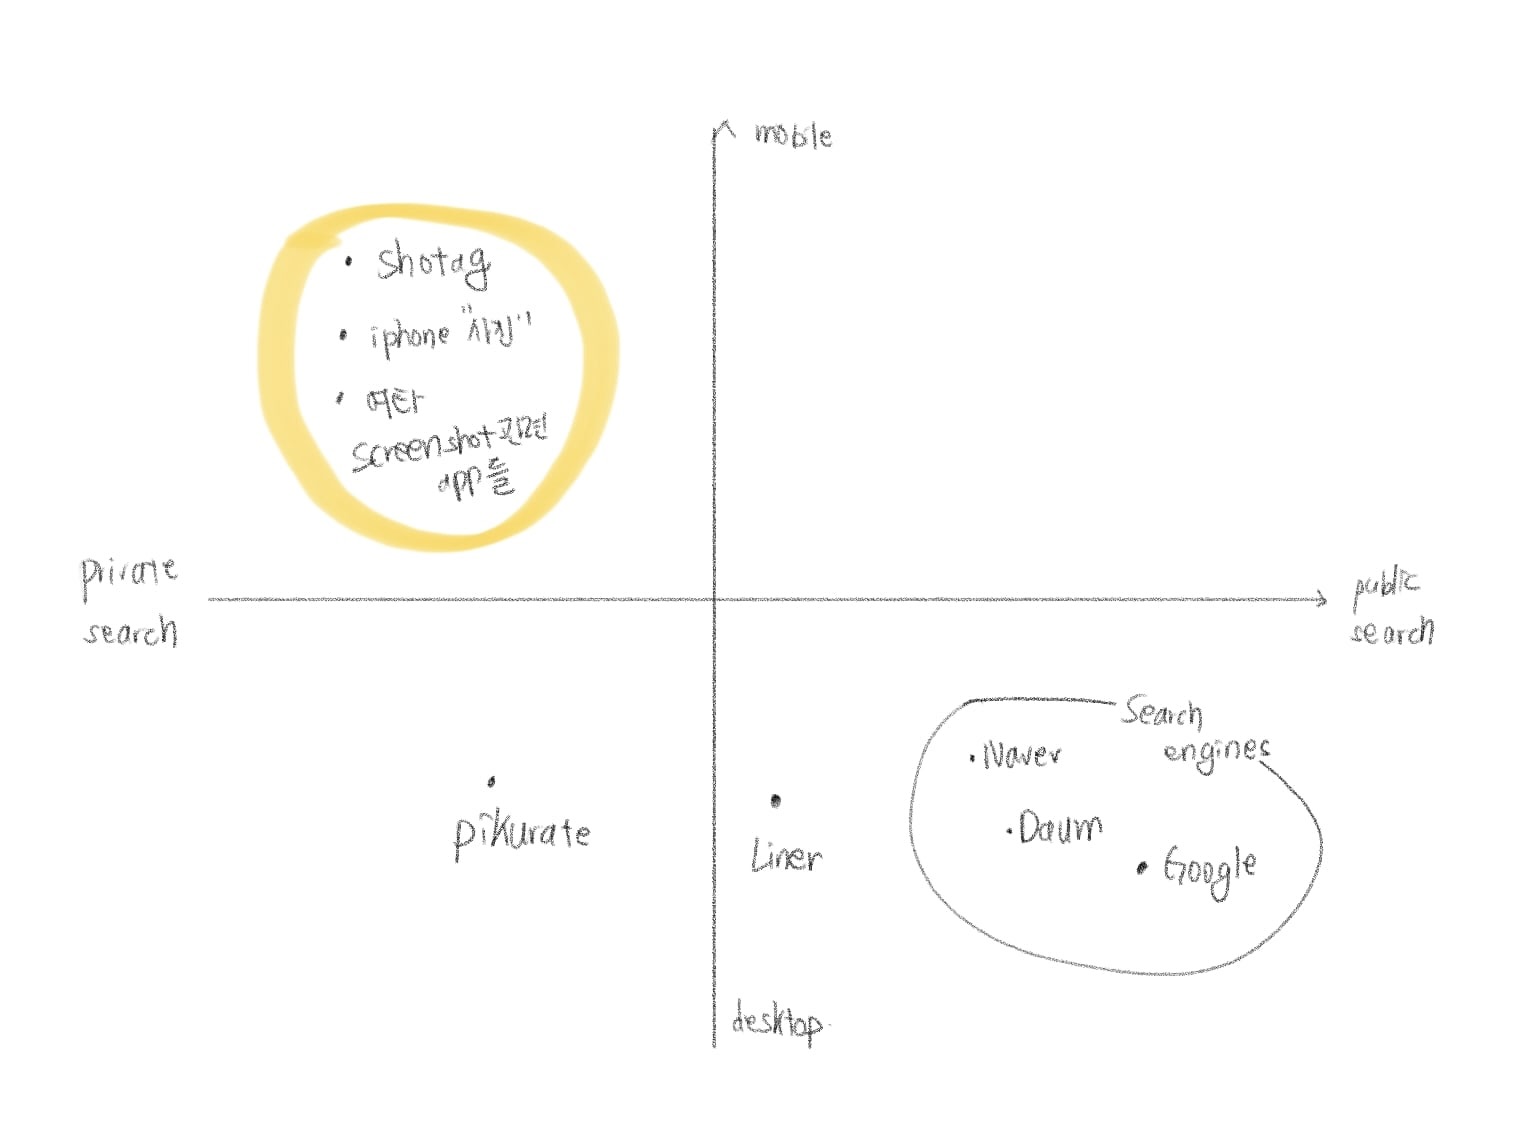 mobile
• shotag
• iphone "사진"
• 여타
screenshot 관련
app들
private
search
public
search
Search
engines
• Naver
• Daum
• Google
pikurate
Liner
desktop